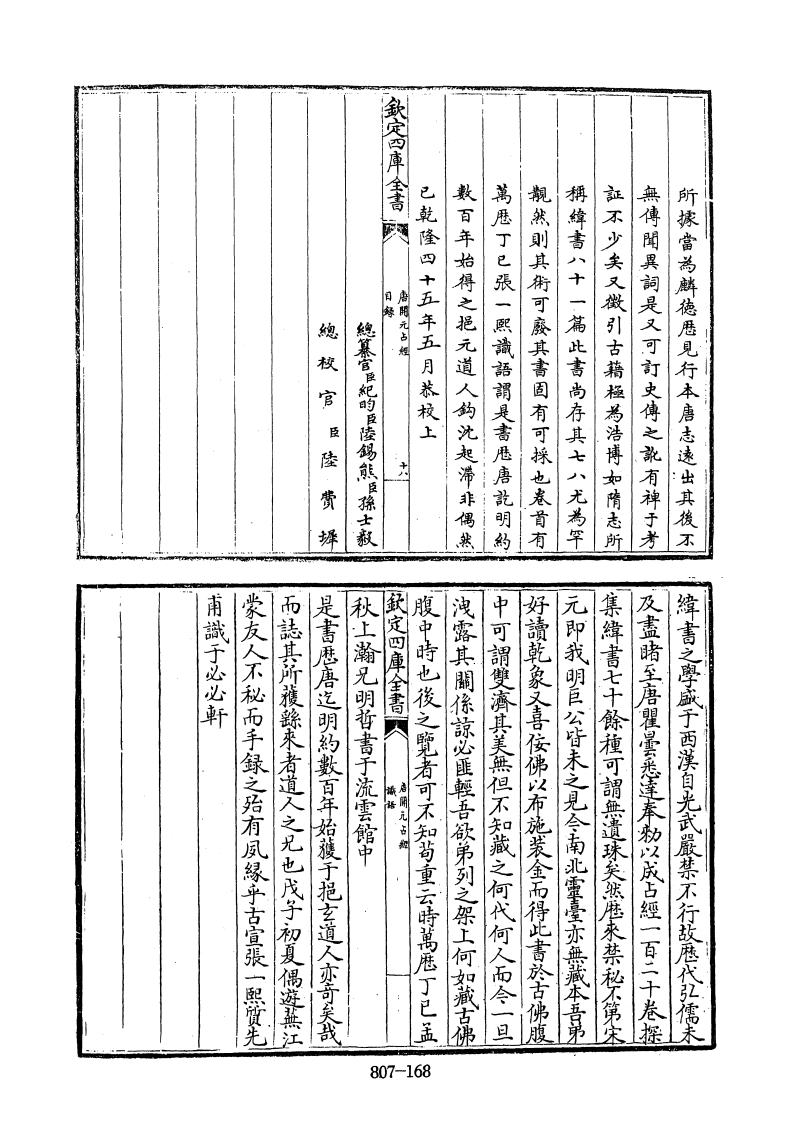 所據當為麟德歴見行本唐志遠出其後不
無傳聞異詞是又可訂史傳之訛有裨于考
証不少矣又徵引古籍極為浩博如隋志所
稱緯書八十一篇此書尚存其七八尤為罕
覯然則其術可廢其書固有可採也卷首有
萬歴丁巳張一熙識語謂是書歴唐訖明約
數百年始得之挹元道人鈎沈起滯非偶然
已乾隆四十五年五月恭校上
欽定四庫全書
唐開元占經
目錄
十八
總纂官臣紀昀臣陸錫熊臣孫士毅
總校官臣陸費墀
緯書之學盛于西漢自光武嚴禁不行故歴代弘儒未
及盡睹至唐瞿曇悉達奉勅以成占經一百二十卷探
集緯書七十餘種可謂無遺珠矣然歴來禁秘不第宋
元即我明巨公皆未之見今南北靈臺亦無藏本吾弟
好讀乾象又喜佞佛以布施裝金而得此書於古佛腹
中可謂雙濟其美無但不知藏之何代何人而今一旦
洩露其關係諒必匪輕吾欲弟列之架上何如藏古佛
腹中時也後之覽者可不知茍重云時萬歴丁巳孟
欽定四庫全書
唐開元占經
識語
秋上瀚兄明哲書于流雲館中
是書歴唐迄明約數百年始獲于挹玄道人亦竒矣哉
而誌其所獲繇來者道人之兄也戊午初夏偶遊蕪江
蒙友人不秘而手録之殆有夙緣乎古宣張一熙質先
甫識于必必軒
807-168